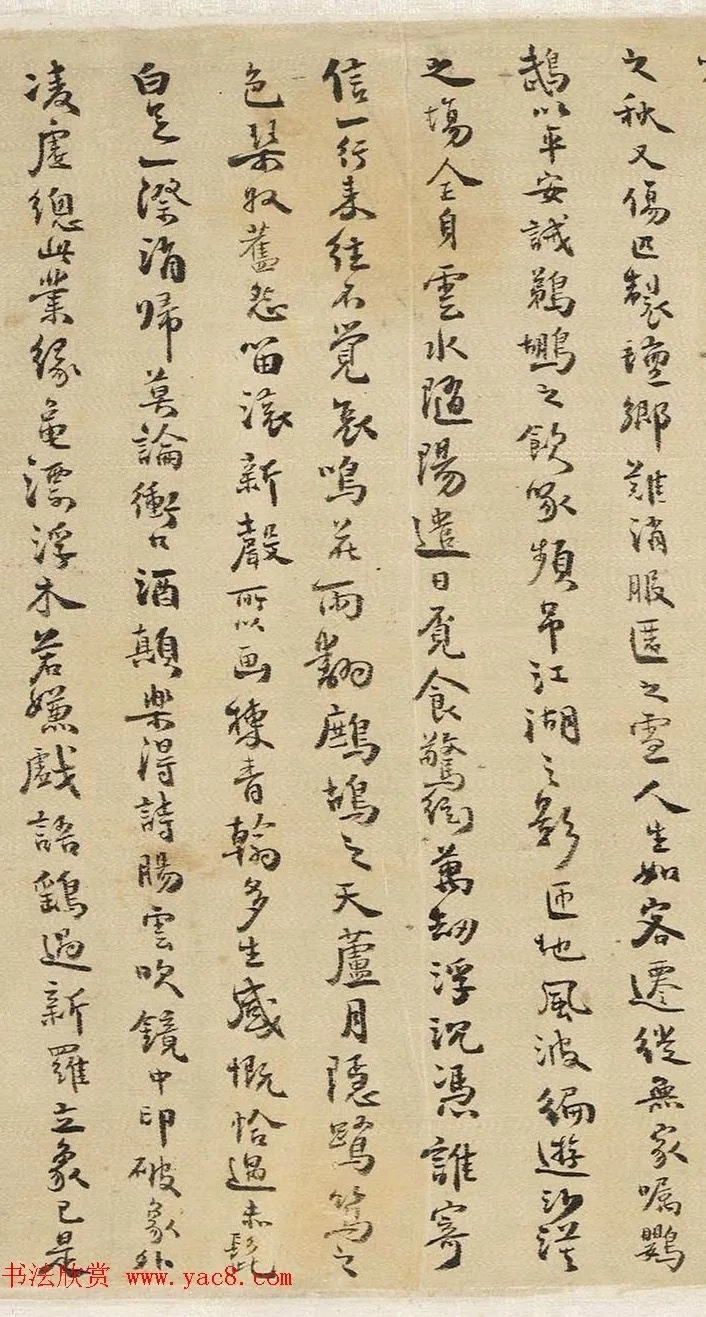 之秋又傷迟製瓊鄉難消服匿之雪人生如客遷從無家囑鸚
鵡以平安誡鷄鶋之飲啄頻吊江湖之影匝地風波徧遊沙漠
之場全身雲水隨陽遣日覓食驚網萬劫浮沉憑誰寄
信一行來往不覺哀鳴花雨翻鷓鴣之天蘆月隱鷺鷥之
色琴收舊怨笛滾新聲所以画棟青翰多生感慨恰遇赤髭
白足一際消歸莫論衝口酒顛樂得詩腸雪吹鏡中印破象外
凌虛總此業緣龜漂浮木若嫌戲語鷂過新羅立象已是
书法欣赏 www.yac8.com